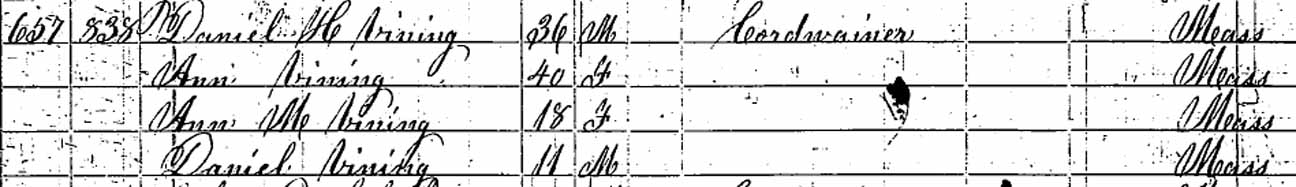 657 838 Daniel H Vining 36 M Cordwainer Mass
Ann Vining 40 F Mass
Ann M Vining 18 F Mass
Daniel Vining 11 M Mass